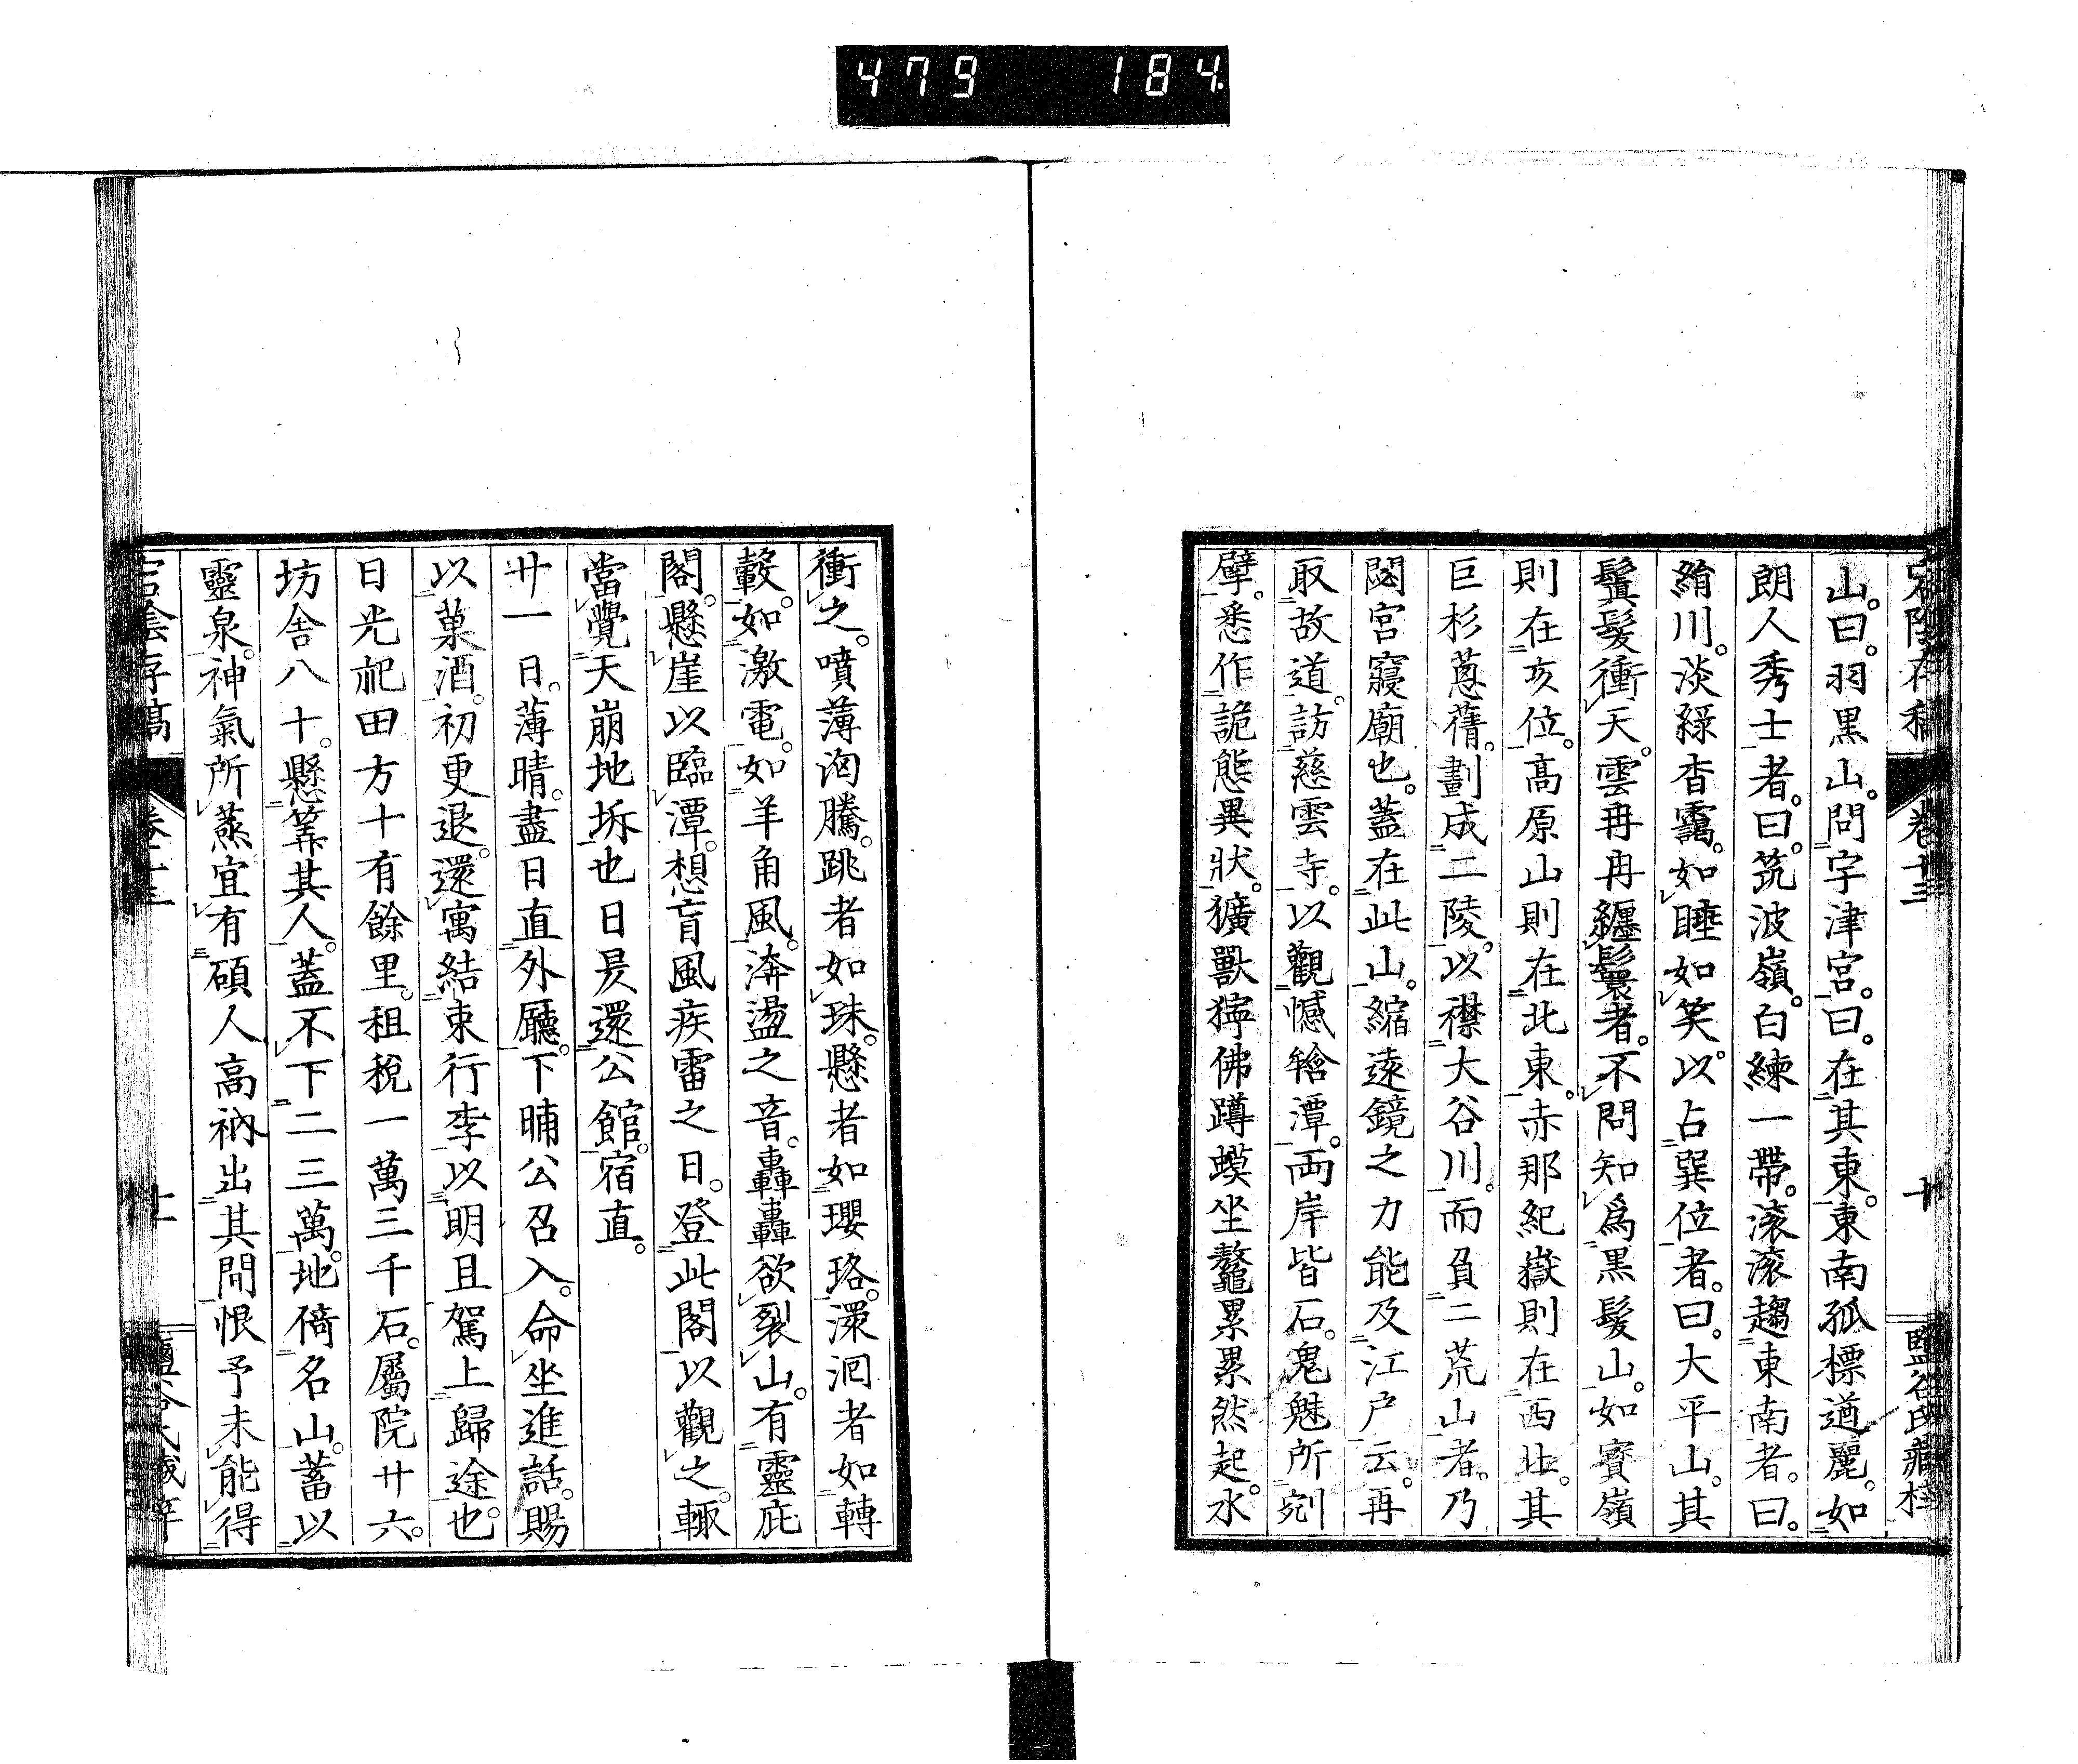 479 184
山。曰。羽黒山。問宇津宮。曰。在其東。東南孤標遒麗。如
朗人秀士者。曰。筑波嶺。白練一帶。滚滚趨東南者。曰。
絹川。淡綠杳靄。如睡如笑。以占巽位者。曰。大平山。其
鬒髮衝天。雲冉冉纏鬟者。不問知爲黒髮山。如寳嶺
則在亥位。高原山則在北東。赤那紀嶽則在西北。其
巨杉蔥蒨。劃成二陵。以襟大谷川。而負二荒山者。乃
閟宮寢廟也。蓋在此山。縮遠鏡之力能及江戸云。再
取故道。訪慈雲寺。以觀憾䭃潭。両岸皆石。鬼魅所剜
擘。悉作詭態異狀。獷獸獰佛蹲蟆坐鼇累累然起。水
宕陰存稿 卷十三 十 鹽谷氏藏梓
衝之。噴薄洶騰。跳者如珠。懸者如瓔珞。澴洄者如轉
轂。如激電。如羊角風。渀盪之音。轟轟欲裂山。有靈庇
閣。懸崖以臨潭。想盲風疾雷之日。登此閣以觀之。輙
當覺天崩地坼也日昃還公館。宿直。
廿一日。薄晴。盡日直外廳。下晡公召入。命坐進話。賜
以菓酒。初更退。還寓結束行李以明且駕上歸途也。
日光祀田方十有餘里。租稅一萬三千石。屬院廿六。
坊舎八十。懸筭其人。蓋不下二三萬。地倚名山。蓄以
靈泉。神氣所蒸宜有碩人高衲出其間恨予未能得
宕陰存稿 卷十三 十一 鹽谷氏藏梓